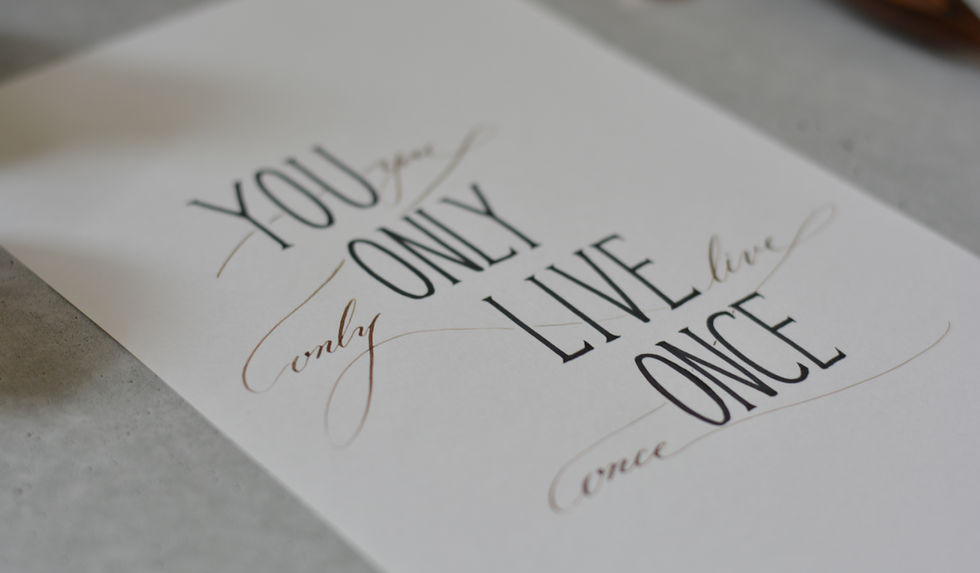 YOU you
ONLY
only
LIVE live
ONCE
once